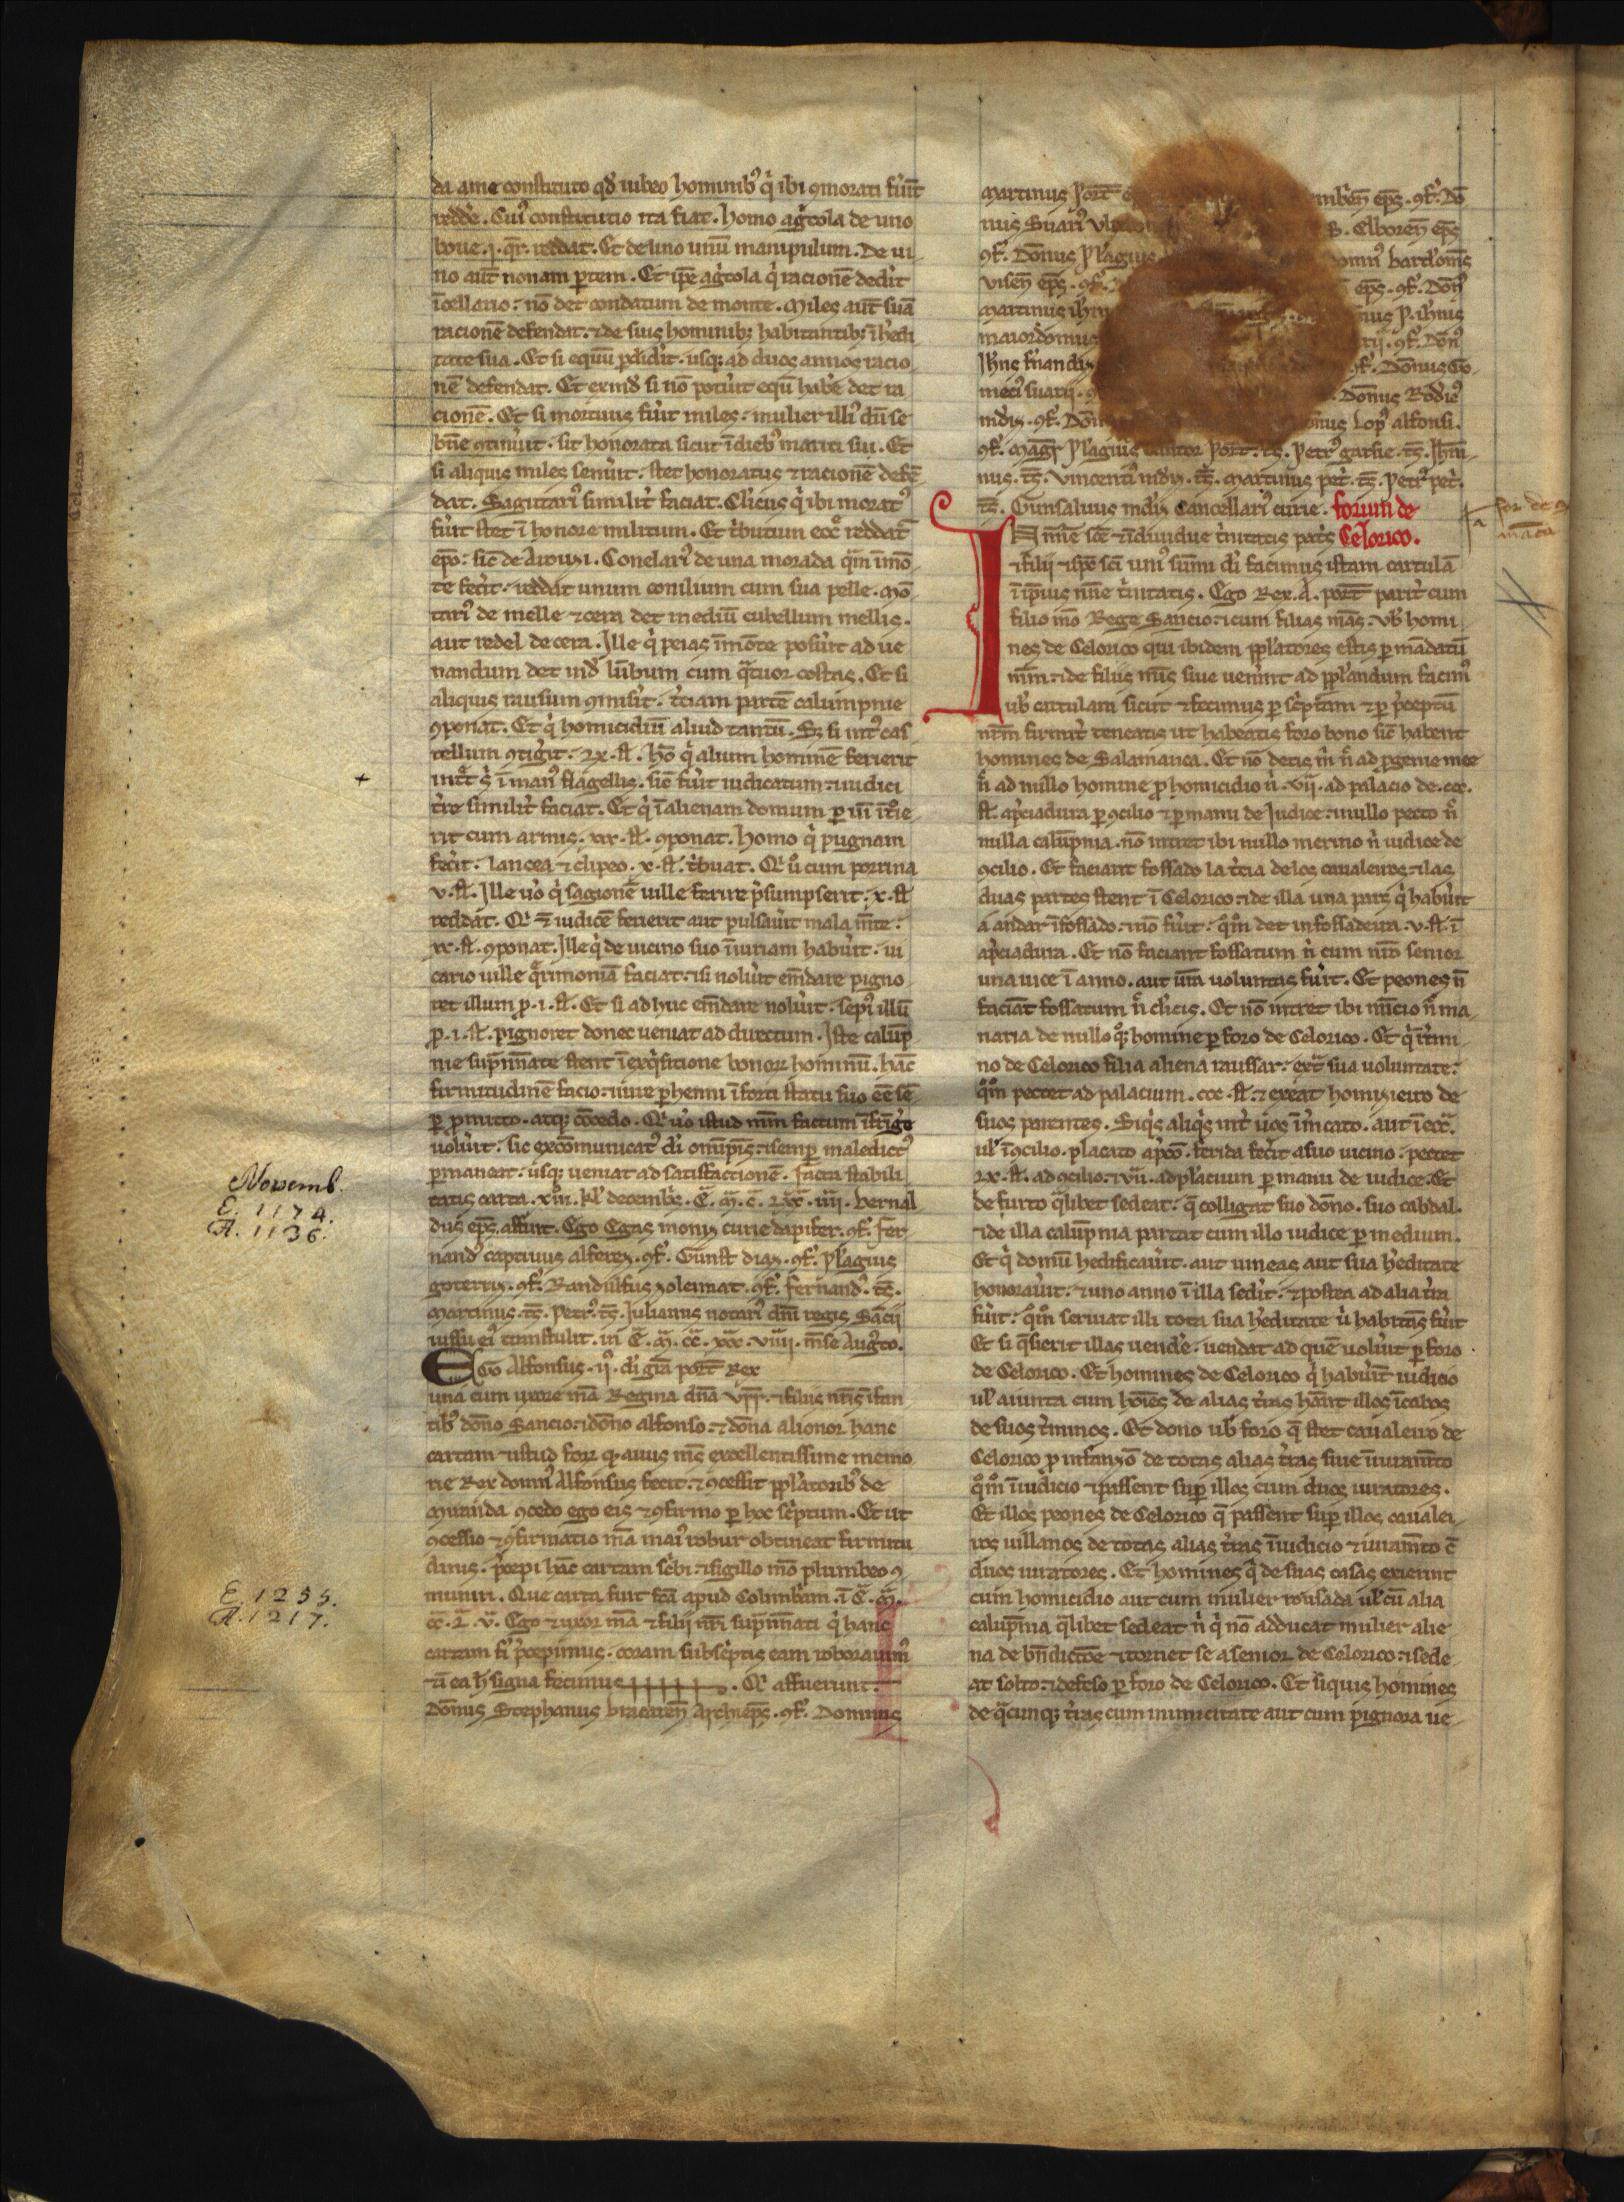 da a me constituto qd̄ iubeo hominibꝰ q̇ ibi ꝯmorati fu̇īt
redde᷑. Cuiꝰ constitutio ita fiat. homo aġcola de uno
boue .i. qr̄. reddat. Et de uno unū manipulum. De ui
no aut̄ nonam ꝑtem. Et ip̄e aġcola q̇ racionē dedit᷑
ī cellario: nō det condatum de monte. Miles aut̄ suā
racionē defendat. ⁊ de suis hominibꝫ habitantibꝫ ī h̓edi
tate sua. Et si equū ꝑdidit᷑. usqꝫ ad duos annos racio
nē defendat. Et exinď si nō potu̇it equū habe᷑ det ra
cionē. Et si mortuus fu̇it miles: mulier illiꝰ dū se
bn̄e ꝯtinu̇it. sit honorata sicut ī diebꝰ mariti sui. Et
si aliquis miles senu̇it. stet honoratus ⁊ racionē defē
dat. Sagitariꝰ similit᷑ faciat. Cl̓icus q̇ ibi moratꝰ
fu̇it stet ī honore militum. Et t̓butum ecc̄e reddat
ep̄o: sic̄ de Arouci. Conelariꝰ de una morada q̄m ī mō
te fec̓it: reddat unum conilium cum sua pelle. Mō
tariꝰ de melle ⁊ cera det mediū cubellum mellis.
aut redel de cera. Ille q̇ peias ī mōte posu̇it ad ue
nandum det inď lūbum cum q̄tuor costas. Et si
aliquis rausum ꝯmisit᷑. t̓ciam partē calumpnie
ꝯponat. Et q̇ homicidiū aliud tantū. Sꝫ si int᷑ cas
tellum ꝯtiḡit. lx. sł. hō q̇ alium hominē ferierit
faciat. Et q̇ ī alienam domum ꝑ uī īt᷑ie
rit cum armis. xx. sł. ꝯponat. homo q̇ pugnam
fec̓it. lancea ⁊ clipeo. x. sł. t̓buat. Qͥ ů cum porrina
v. sł. Ille ůo q̇ sagionē uille ferire p̓sumpserit. x. sł
reddat. Qͥ iudicē ferierit aut pulsau̇it mala mn̄te:
xx. sł. ꝯponat. Ille q̇ de uicino suo īiuriam habu̇it. ui
cario uille q̄rimoniā faciat. ⁊ si nolu̇it em̄dare pigno
ret illum ꝓ .i. sł. Et si adhuc em̄dare nolu̇it. sepiꝰ illū
ꝓ .i. sł. pignoret donec ueniat ad directum. Iste calūp
nie sup̄nīnate stent ī exq̇sitione bonoꝝ hominū. hāc
firmitudinē facio. ⁊ iure ꝑhenni ī forti statu suo eē sē
ꝑ ꝓmitto. atqꝫ cōcedo. Qͥ ůo istud mm̄ factum īfriḡe
uolu̇it. sic excōmunicatꝰ dī om̄ip̄tis. ⁊ semꝑ maledictꝰ
ꝑmaneat. usqꝫ ueniat ad satisfactionē. Facta stabili
tatis carta. xiii. kł decemb̄r. Ē. M̄. C̄. lxx. iiii. Bernal
dus ep̄s. affuit. Ego Egas moniz curie dapifer. ꝯf̄. Fer
nandꝰ captiuus alferez. ꝯf̄. Gunsł diaz. ꝯf̄. Pelagius
goterriz. ꝯf̄. Randulfus zoleimat. ꝯf̄. Fernandꝰ. ts̄.
Martinus. ts̄. Petrꝰ. ts̄. Iulianus notariꝰ dn̄i regis Sācii
iussu eiꝰ transtulit. in Ē. M̄. CC̄. xxx. viiii. mn̄se Augto.
Ego Alfonsus .ii. dī grā port̄ Rex
una cum uxore mā Regina dn̄a Vrr̄. ⁊ filiis nr̄is īfan
tibꝰ dōno Sancio. ⁊ dōno alfonso. ⁊ dōna alionor hanc
cartam ⁊ istud forr̄ qͦ auus ms̄ excellentissime memo
rie Rex domnꝰ Alfonsus fecit. ⁊ ꝯcessit ppl̄atoribꝰ de
Miranda ꝯcedo ego eis ⁊ ꝯfirmo ꝑ hoc sc̓ptum. Et ut
ꝯcessio ⁊ ꝯfirmatio mā maiꝰ robur obtineat firmitu
dinis. p̓cepi hāc cartam sc̓bi. ⁊ sigillo mō plumbeo ꝯ
muniri. Que carta fuit fc̄a apud Colimb̓am. ī Ē. M̄.
CC̄. L̄. v̄. Ego ⁊ uxor mā ⁊ filii nr̄i sup̄nīnati q̇ hanc
cartam fī p̓cepimus. coram subsc̓ptis eam roborauimꝰ
⁊ ī ea h̄ signa fecimus. Qͥ affuerunt.
Dōnus Stephanus bracareñ Archiep̄s. ꝯf̄. Domnus
Novemb.
E. 1174.
A. 1136.
E. 1255.
A. 1217.
Martinus Port̄
ep̄s. ꝯf̄. Dō
nus Suariꝰ Elboreñ ep̄s
ꝯf̄. Dōnus Pelagius bartholoms̄
Viseñ ep̄s. ꝯf̄. ep̄s. ꝯf̄. Dōnꝰ
Martinus ioh̄nis P. ioh̄nis
maiordomus ꝯf̄. Donꝰ
Ioh̄ns fr̄nandiz ꝯf̄. Dōnus Go
meciꝰ suarij. Dōnus Rodericꝰ
mdiz. ꝯf̄. Lopꝰ alfonsi.
ꝯf̄. Magr̄ Pelagius cantor Port̄. ts̄. Petrꝰ garsie. ts̄. Ioh̄ni
nus. ts̄. Vincentiꝰ mdiz. ts̄. Martinus pet̓. ts̄. Petrꝰ pet̓.
ts̄. Gunsaluus mdiz Cancellariꝰ curie. forum de
Celorico.
IN nīe sc̄e ⁊ īdiuidue t̓nitatis patis̄
⁊ filii ⁊ sp̄e sc̄i uniꝰ sūmi dī facimus istam cartulā
ī ip̄ius nīne t̓nitatis. Ego Rex. A. port̄ parit᷑ cum
filio mō Rege Sancio. ⁊ cum filias mās. uƀ homi
nes de Celorico qui ibidem ppl̄atores estis ꝑ mādatū
nr̄m. ⁊ de filiis nr̄is siue uener̄int ad ppl̄andum facimꝰ
uobꝰ cartulam sicut ⁊ fecimus ꝑ sc̓ptam ⁊ ꝑ p̓ceptū
nr̄m firmit᷑ teneatis ut habeatis foro bono sic̄ habent
homines de Salamanca. Et nō detis m̓ n̄ ad ꝓgenie mee
n̄ ad nullo homine ꝓ homicidio n̓ .vii. ad palacio de. ccc.
sł. ap̓ciadura ꝑ ꝯcilio ⁊ ꝑ manu de Iudice. ⁊ nullo pecto n̄
nulla calūpnia. nō intret ibi nullo merino n̓ iudice de
ꝯcilio. Et faciant fossado la t̓cia de los caualeiros. ⁊ las
duas partes stent ī Celorico. ⁊ de illa una pars q̇ habu̇īt
a andar ī fossado. ⁊ nō fu̇it: q̇m̊ det in fossadeira. v. sł. ī
ap̓ciadura. Et nō faciant fossatum n̓ cum nr̄o senior
una uice ī anno. aut ur̄a uoluntas fu̇it. Et peones n̄
faciāt fossatum n̄ cl̓icis. Et nō intret ibi nūcio n̄ ma
naria de nullo qͦꝫ homine ꝑ foro de Celorico. Et q̇ ī t̓mi
no de Celorico filia aliena raussar. ext̓ sua uoluntate:
q̇m̊ pectet ad palacium. ccc. sł. ⁊ exeat homizieiro de
suos parentes. Siq̇s aliq̇s int᷑ uos ī m̓cato. aut ī ecc̄a.
uł ī ꝯcilio. placato ap̓co. ferida fec̓it a suo uicino. pectet
lx. sł. ad ꝯcilio. ⁊ vii. ad placium ꝑ manu de iudice. Et
de furto q̄libet sedeat. q̄ colligat suo dōno. suo cabdal.
⁊ de illa calūpnia partat cum illo iudice ꝑ medium.
Et q̇ domū hedificau̇it. aut uineas aut sua h̓editate
honorau̇it. ⁊ uno anno ī illa sedit᷑. ⁊ postea ad alia t̓ra
fu̇it: q̇m̊ seruiat illi tota sua h̓editate u̇ habitās fu̇it
Et si q̄sierit illas uende᷑. uendat ad quē uolu̇it ꝑ foro
de Celorico. Et homines de Celorico q̇ habu̇īt iudicio
uł aiunta cum hoīes de alias t̓ras hāīt illos ī cabos
de suos t̓minos. Et dono uƀ foro q̄ stet caualeiro de
Celorico ꝓ infanzō de totas alias t̓ras siue ī iuram̄to
q̊m̊ ī iudicio ⁊ passent suꝑ illos cum duos iuratores.
Et illos peones de Celorico q̄ passent suꝑ illos caualei
ros uillanos de totas alias t̓ras ī iudicio ⁊ iuram̄to c̄
duos iuratores. Et homines q̇ de suas casas exierint
cum homicidio aut cum mulier rousada uł cū alia
calūpnia q̄libet sedeat n̓ q̇ nō adducat mulier alie
na de bn̄dictōe ⁊ tornet se a senior de Celorico. ⁊ sede
at solto. ⁊ defeso ꝑ foro de Celorico. Et siquis homines
de q̄cunqꝫ t̓ras cum inimicitate aut cum pignora ue